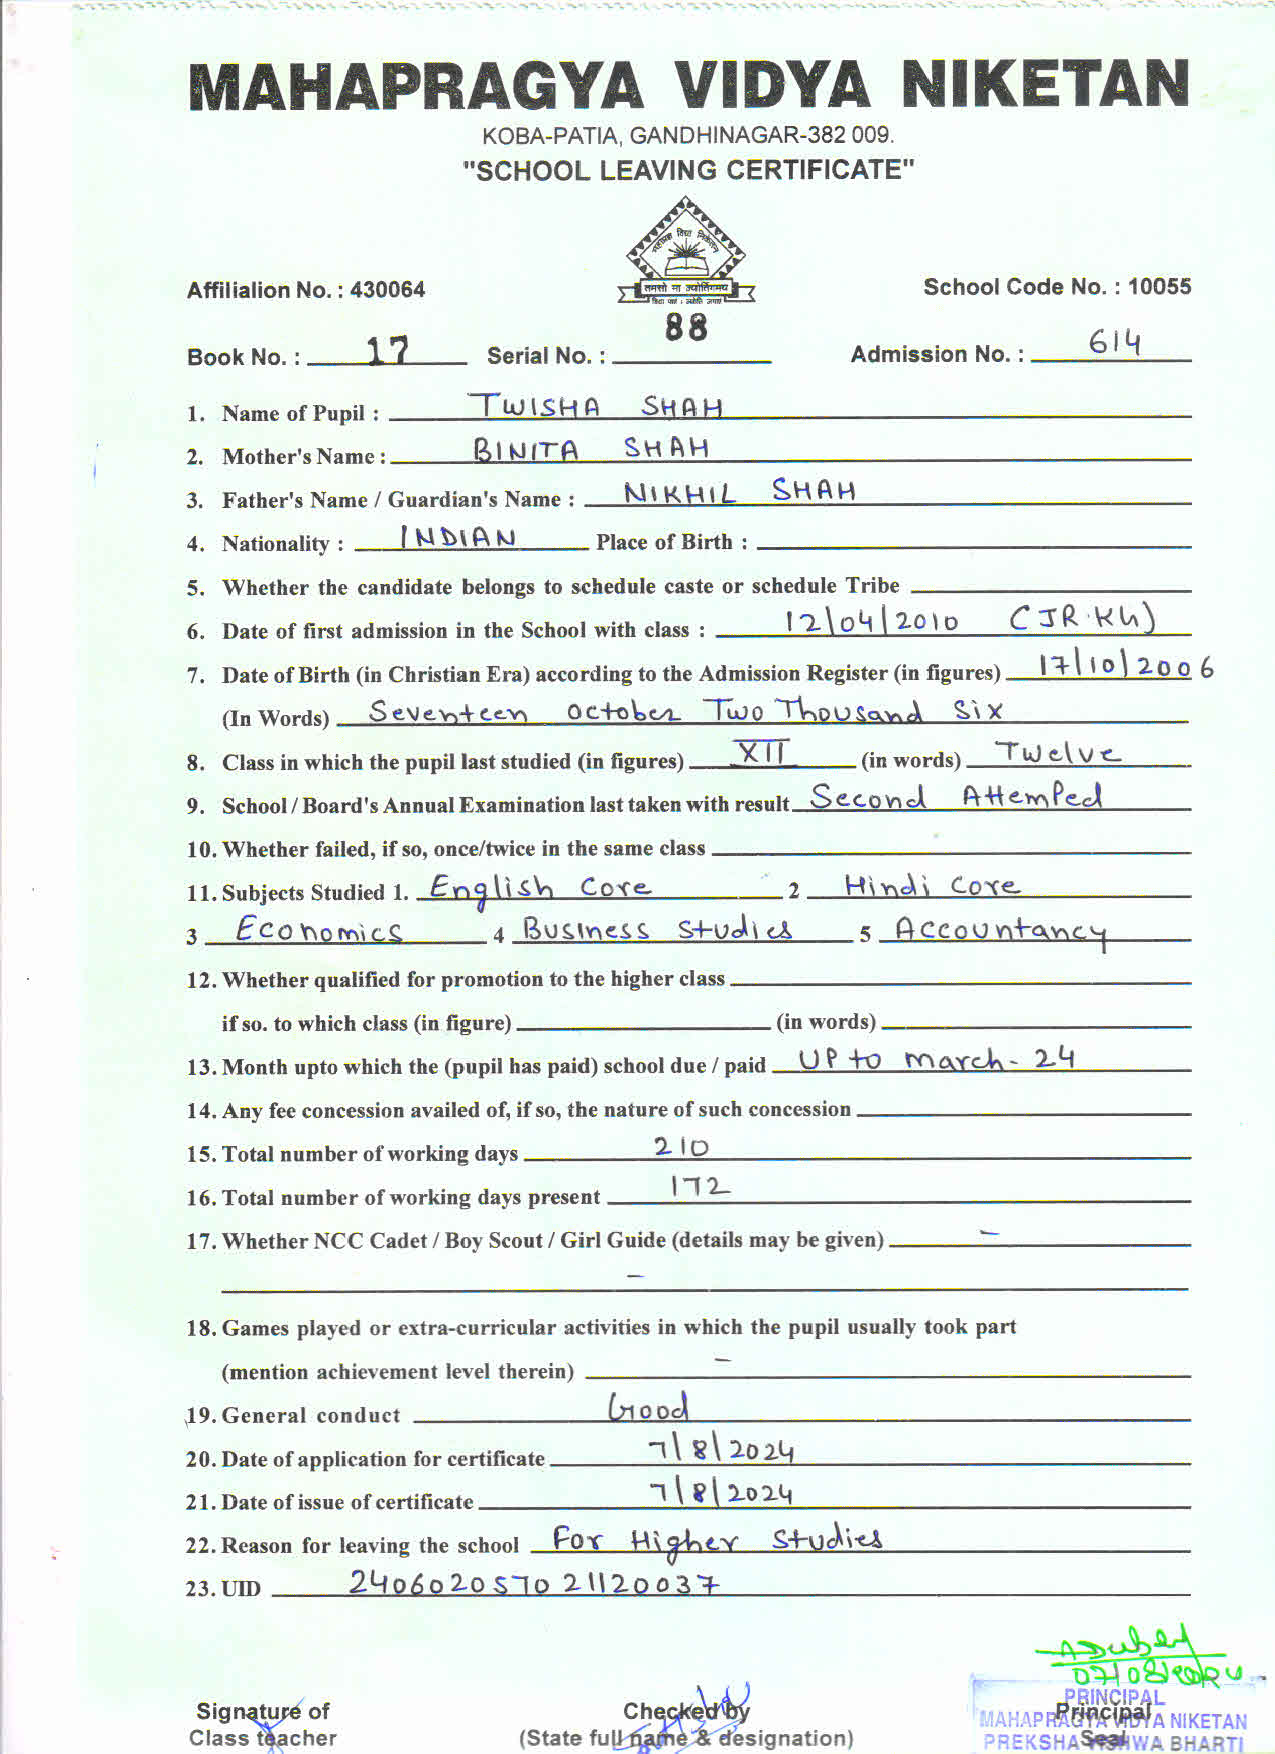 MAHAPRAGYA VIDYA NIKETAN
KOBA-PATIA, GANDHINAGAR-382 009.
"SCHOOL LEAVING CERTIFICATE"
महाप्रज्ञ विद्या निकेतन
तमसो मा ज्योतिर्गमय
Affilialion No. : 430064 School Code No. : 10055
Book No. : 17 Serial No. : 88 Admission No. : 614
1. Name of Pupil : TWISHA SHAH
2. Mother's Name : BINITA SHAH
3. Father's Name / Guardian's Name : NIKHIL SHAH
4. Nationality : INDIAN Place of Birth :
5. Whether the candidate belongs to schedule caste or schedule Tribe
6. Date of first admission in the School with class : 12/04/2010 (JR.KG)
7. Date of Birth (in Christian Era) according to the Admission Register (in figures) 17/10/2006
(In Words) Seventeen October Two Thousand Six
8. Class in which the pupil last studied (in figures) XII (in words) Twelve
9. School / Board's Annual Examination last taken with result Second Attemped
10. Whether failed, if so, once/twice in the same class
11. Subjects Studied 1. English Core 2 Hindi Core
3 Economics 4 Business Studies 5 Accountancy
12. Whether qualified for promotion to the higher class
if so. to which class (in figure) (in words)
13. Month upto which the (pupil has paid) school due / paid UP to march - 24
14. Any fee concession availed of, if so, the nature of such concession
15. Total number of working days 210
16. Total number of working days present 172
17. Whether NCC Cadet / Boy Scout / Girl Guide (details may be given) -
-
18. Games played or extra-curricular activities in which the pupil usually took part
(mention achievement level therein) -
19. General conduct Good
20. Date of application for certificate 7/8/2024
21. Date of issue of certificate 7/8/2024
22. Reason for leaving the school For Higher Studies
23. UID 240602057021120037
ADubey
07/08/2024
Signature of Checked by Principal
Class teacher (State full name & designation) Seal
PRINCIPAL
MAHAPRAGYA VIDYA NIKETAN
PREKSHA VISHWA BHARTI